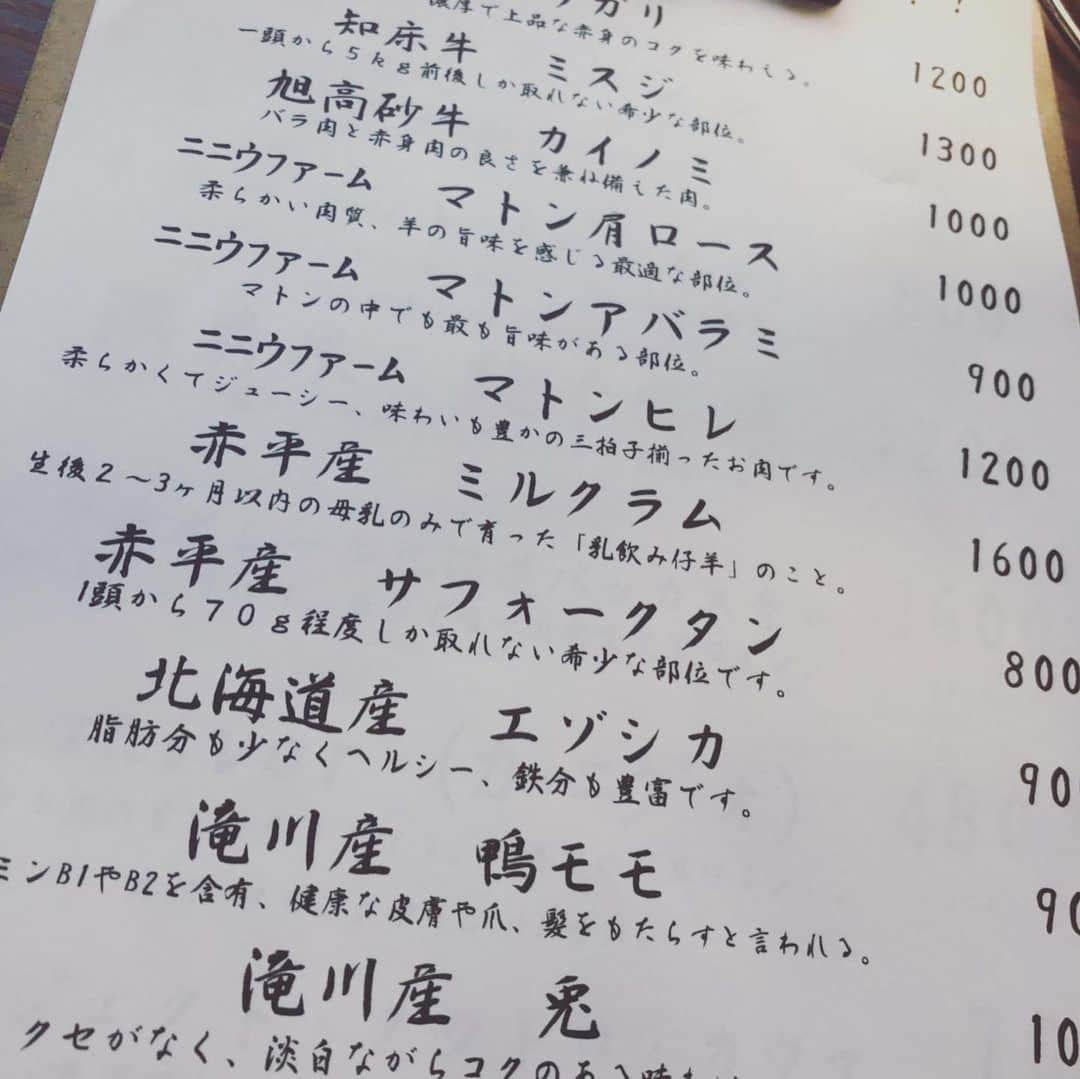 ガリ
濃厚で上品な赤身のコクを味わえる。 1200
知床牛 ミスジ
一頭から5kg前後しか取れない希少な部位。 1300
旭高砂牛 カイノミ
バラ肉と赤身肉の良さを兼ね備えた肉。 1000
ニニウファーム マトン肩ロース
柔らかい肉質、羊の旨味を感じる最適な部位。 1000
ニニウファーム マトンアバラミ
マトンの中でも最も旨味がある部位。 900
ニニウファーム マトンヒレ
柔らかくてジューシー、味わいも豊かの三拍子揃ったお肉です。 1200
赤平産 ミルクラム
生後2〜3ヶ月以内の母乳のみで育った「乳飲み仔羊」のこと。 1600
赤平産 サフォークタン
1頭から70g程度しか取れない希少な部位です。 800
北海道産 エゾシカ
脂肪分も少なくヘルシー、鉄分も豊富です。 90
滝川産 鴨モモ
ミンB1やB2を含有、健康な皮膚や爪、髪をもたらすと言われる。 90
滝川産 兎
クセがなく、淡白ながらコクのある味わ 10